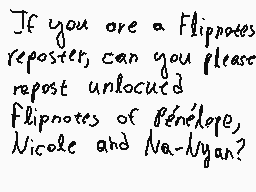 If you are a Flipnotes
reposter, can you please
repost unlocked
Flipnotes of Pénélope,
Nicole and Na-Nyan?